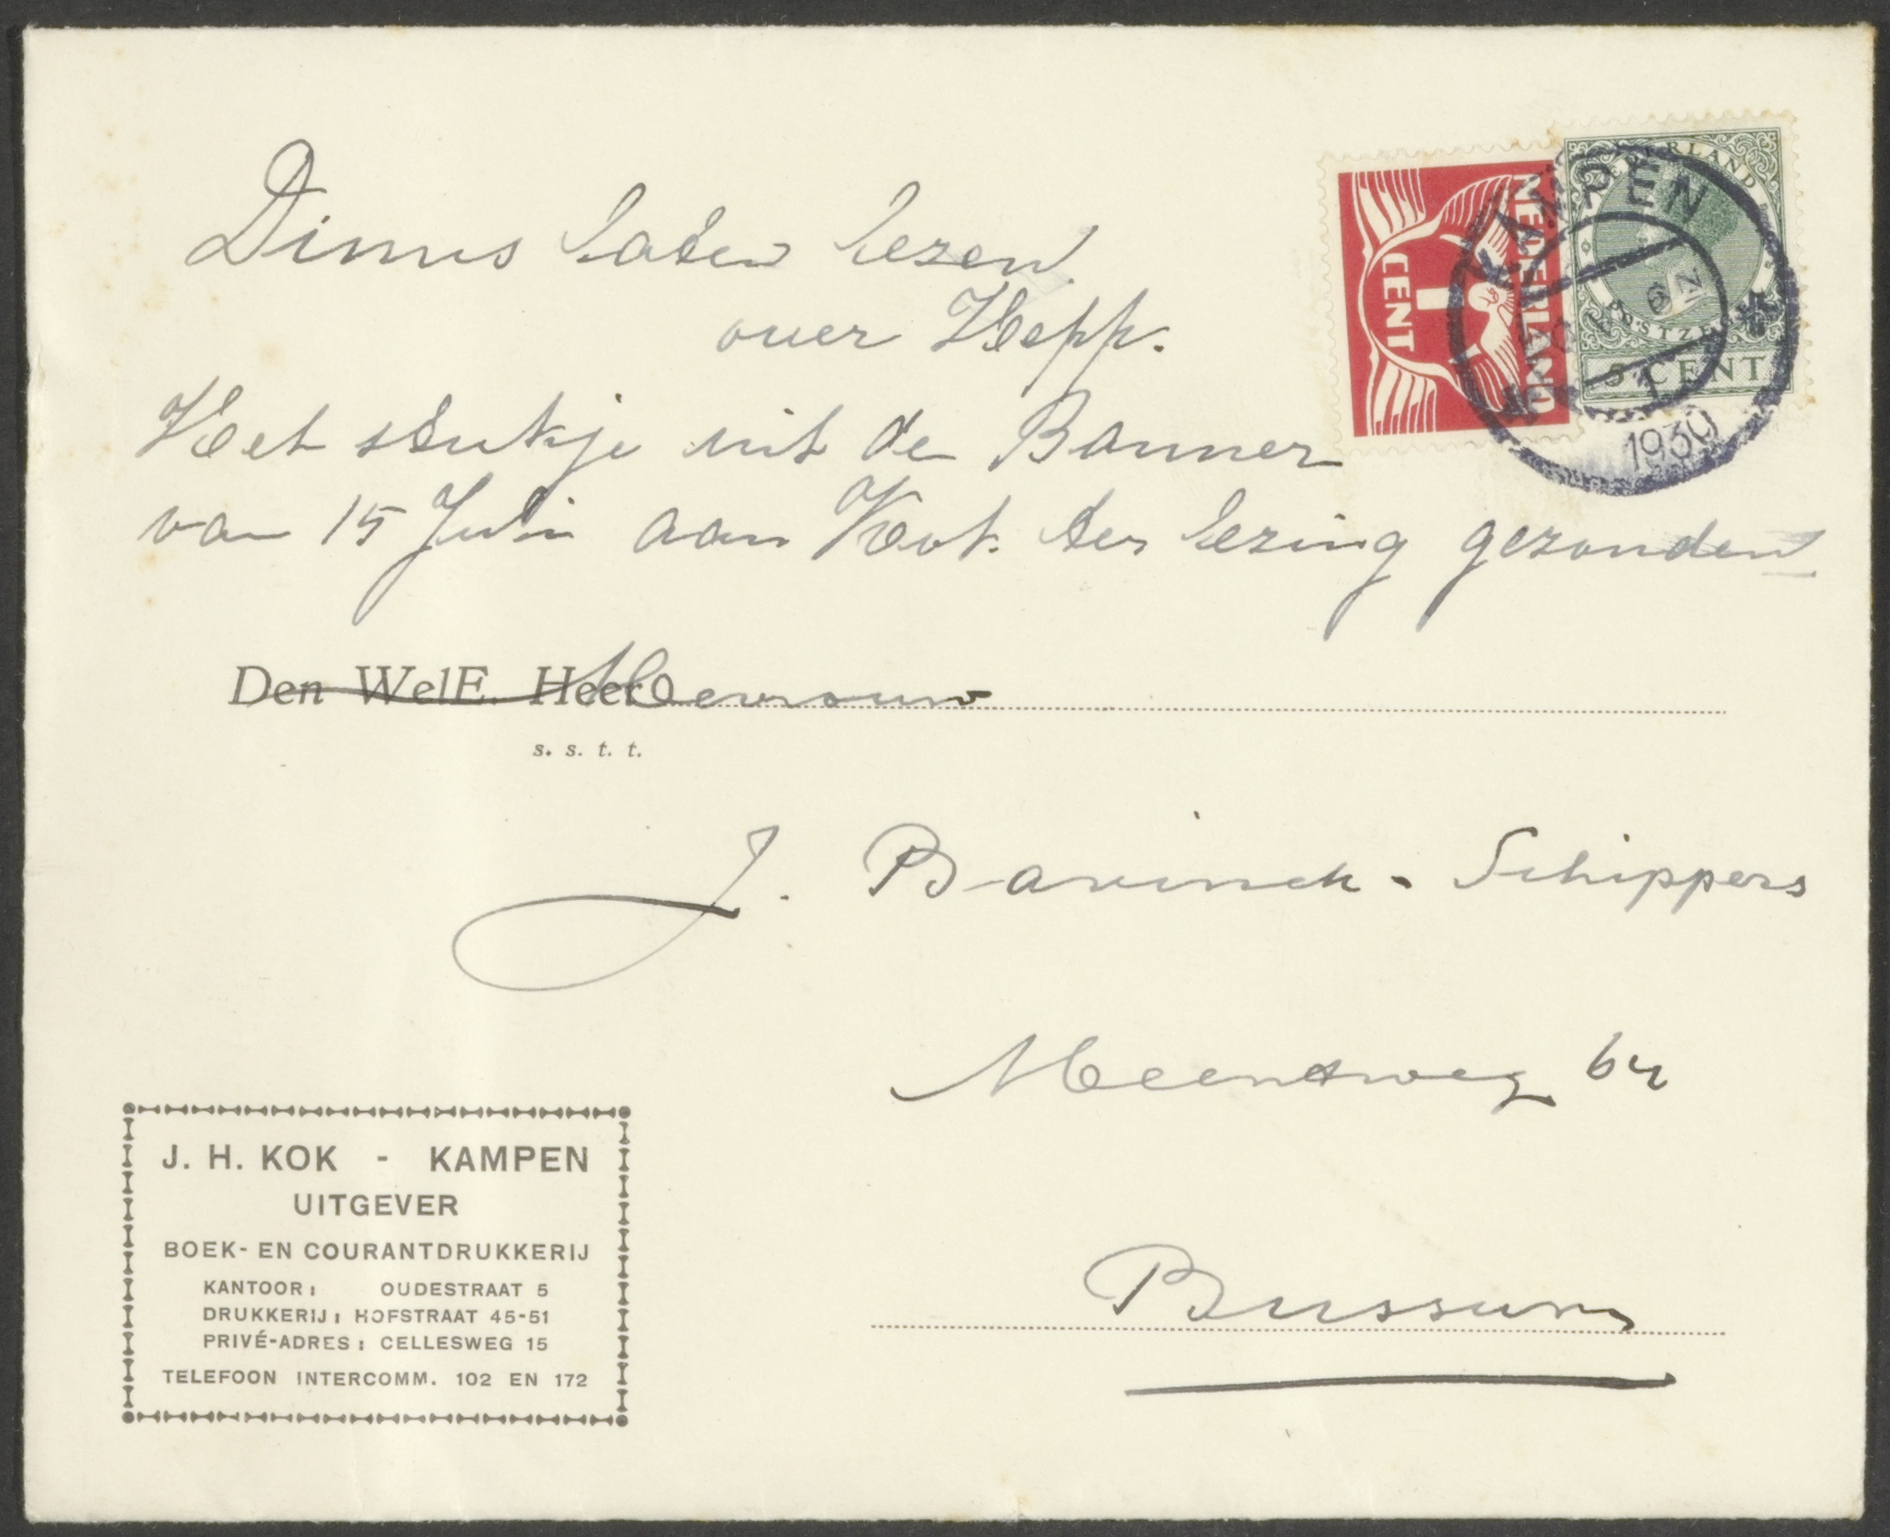 Dimus laten lezen
over Hepp.
Het stukje uit de Banner
van 15 Juli aan Kok ter lezing gezonden
NEDERLAND
1 CENT
NEDERLAND
POSTZEGEL
5 CENT
KAMPEN
1930
Den WelE. Heer Mevrouw
s. s. t. t.
J. Bavinck - Schippers
Meentweg 62
Bussum
J. H. KOK - KAMPEN
UITGEVER
BOEK- EN COURANTDRUKKERIJ
KANTOOR: OUDESTRAAT 5
DRUKKERIJ: HOFSTRAAT 45-51
PRIVÉ-ADRES: CELLESWEG 15
TELEFOON INTERCOMM. 102 EN 172